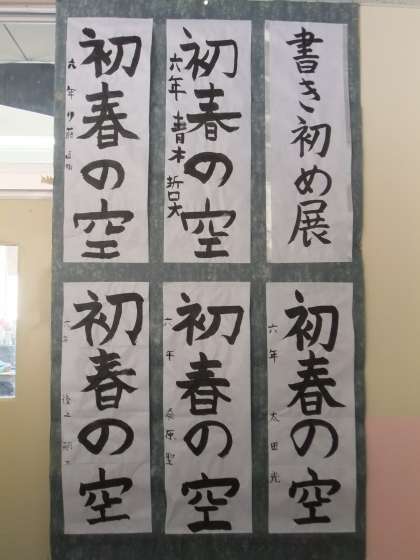 書き初め展
初春の空
六年 青木 哲大
初春の空
六年
初春の空
六年 太田光
初春の空
六年 桑原聖
初春の空
六年